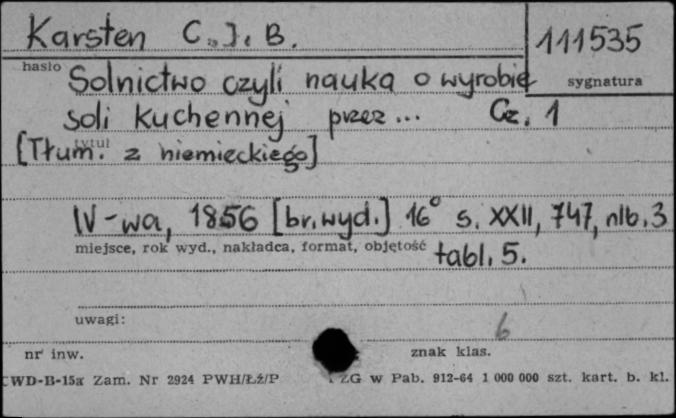 Karsten C. J. B.
111535
hasło
sygnatura
Solnictwo czyli nauka o wyrobie
soli kuchennej przez... Cz. 1
tytuł
[Tłum. z niemieckiego]
W-wa, 1856 [br. wyd.] 16° s. XXII, 747, nlb. 3
miejsce, rok wyd., nakładca, format, objętość
tabl. 5.
uwagi:
6
nr inw.
znak klas.
CWD-B-15a Zam. Nr 2924 PWH/Łż/P ZG w Pab. 912-64 1 000 000 szt. kart. b. kl.